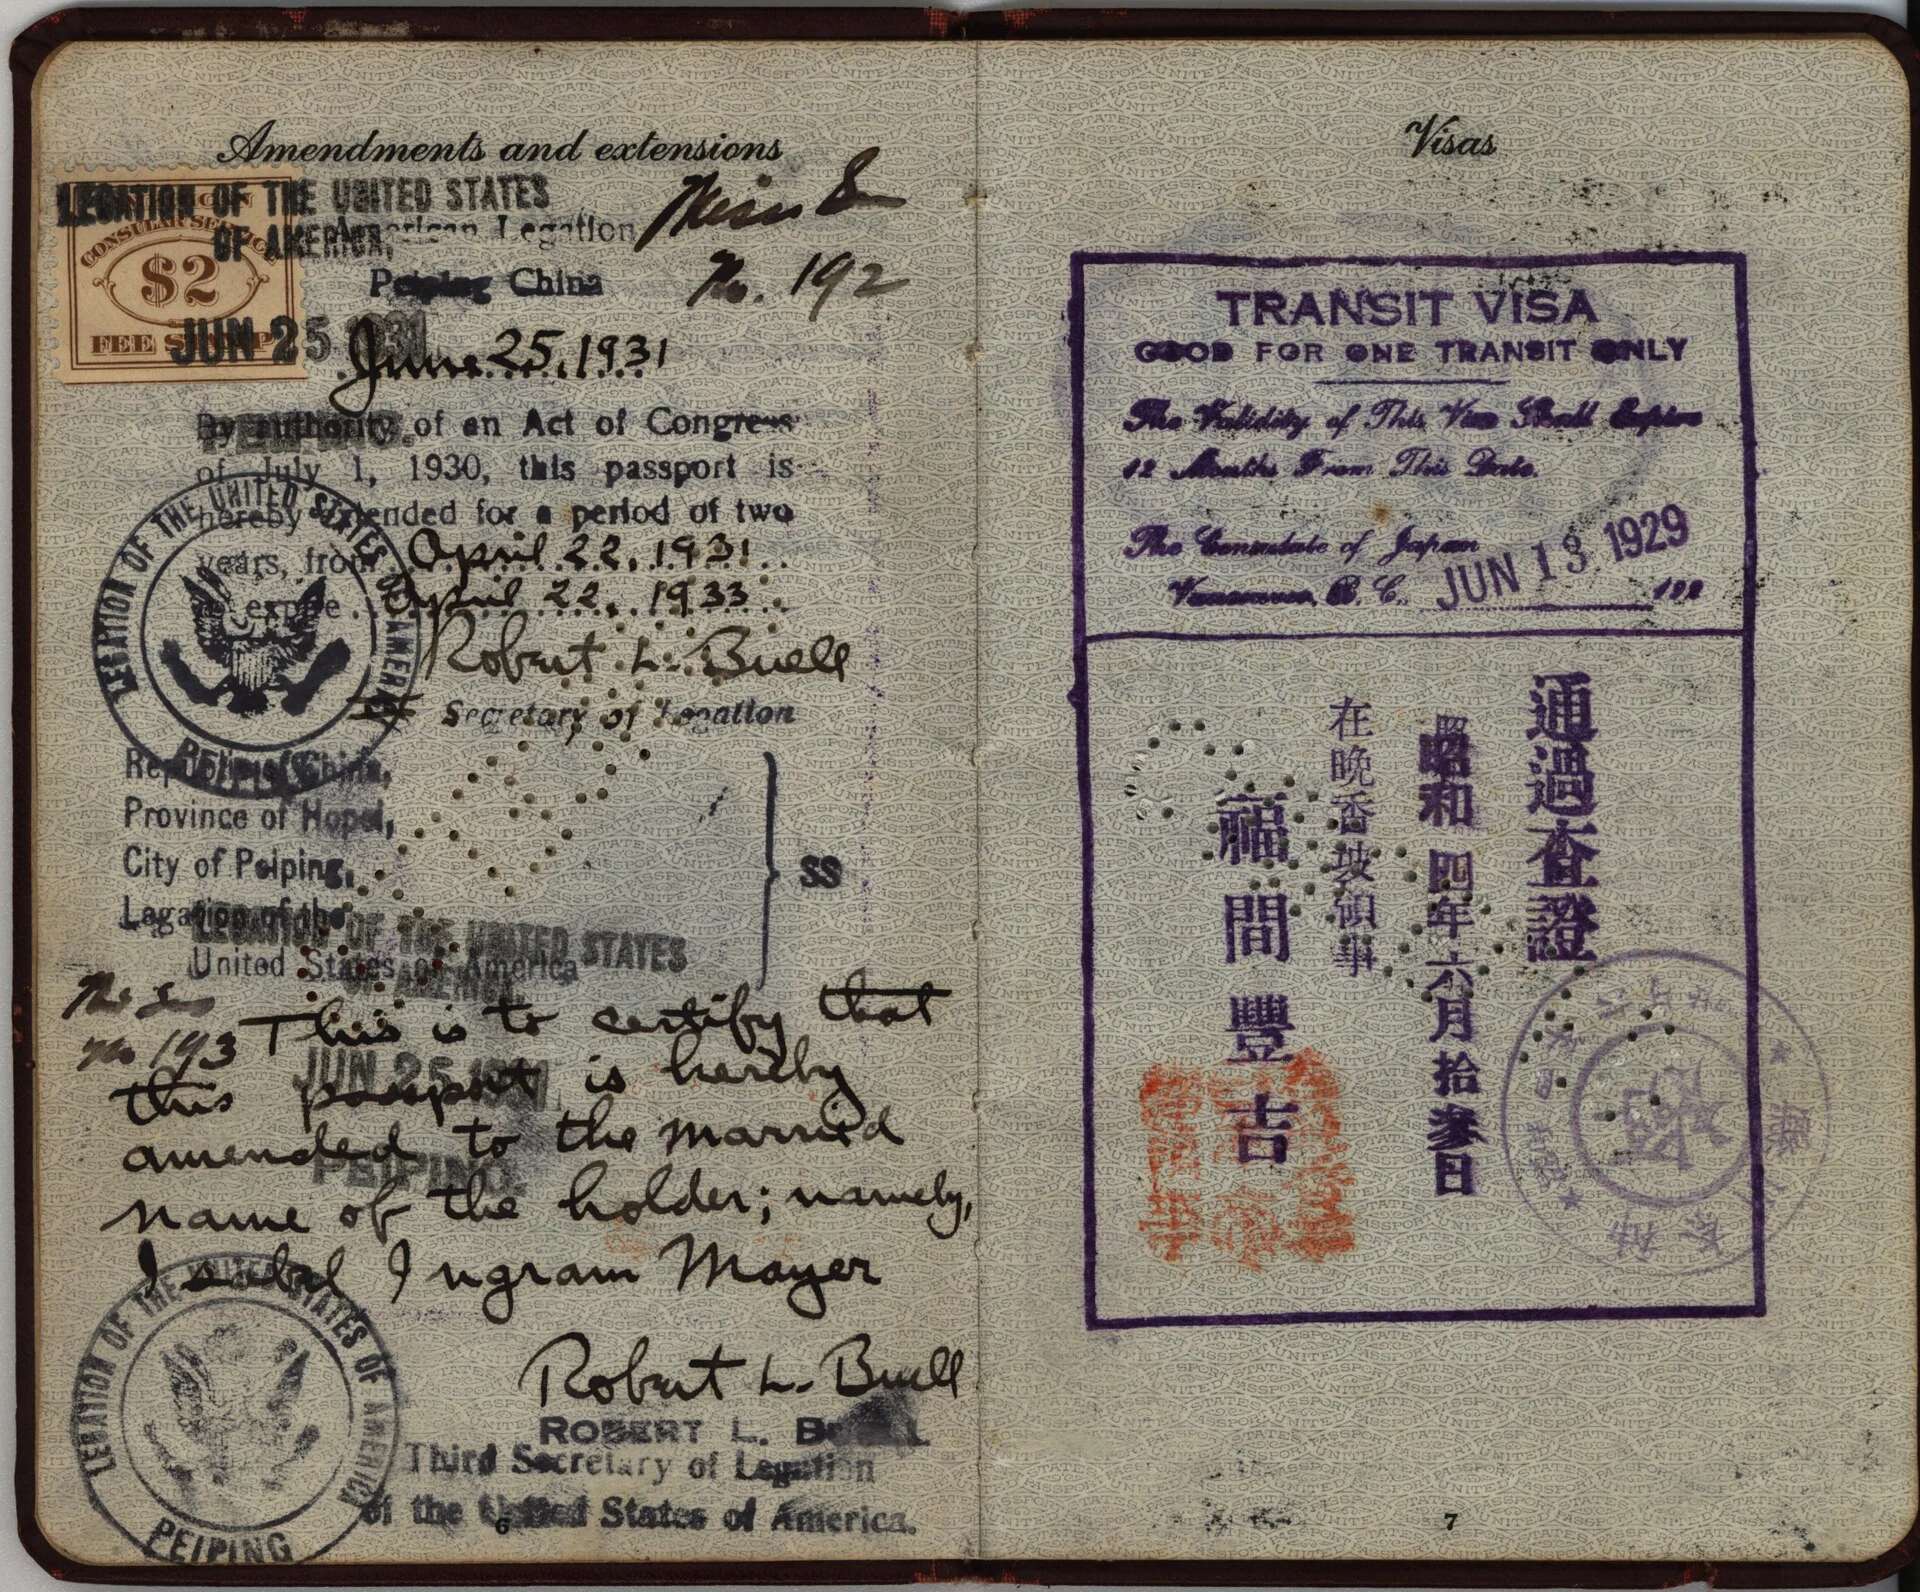 Amendments and extensions
LEGATION OF THE UNITED STATES
OF AMERICA,
American Legation
Peiping China
No. 192
CONSULAR SERVICE
$2
FEE STAMP
JUN 25 1931
June 25, 1931
PEIPING.
By authority of an Act of Congress
of July 1, 1930, this passport is
hereby extended for a period of two
years, from April 22, 1931
to expire April 22, 1933
Robert L. Buell
Secretary of Legation
LEGATION OF THE UNITED STATES OF AMERICA
PEIPING
Republic of China,
Province of Hopei,
City of Peiping,
Legation of the
United States of America
SS
LEGATION OF THE UNITED STATES
OF AMERICA
No 193
This is to certify that
this passport is hereby
JUN 25 1931
amended to the married
PEIPING.
name of the holder; namely,
Isabel Ingram Mayer
Robert L. Buell
ROBERT L. BUELL
Third Secretary of Legation
of the United States of America.
LEGATION OF THE UNITED STATES OF AMERICA
PEIPING
6
Visas
TRANSIT VISA
GOOD FOR ONE TRANSIT ONLY
The Validity of This Visa Shall Expire
12 Months From This Date.
The Consulate of Japan
Vancouver, B. C., JUN 13 1929 192
通過査證
昭和四年六月拾参日
在晩香坡領事
福間豐吉
7